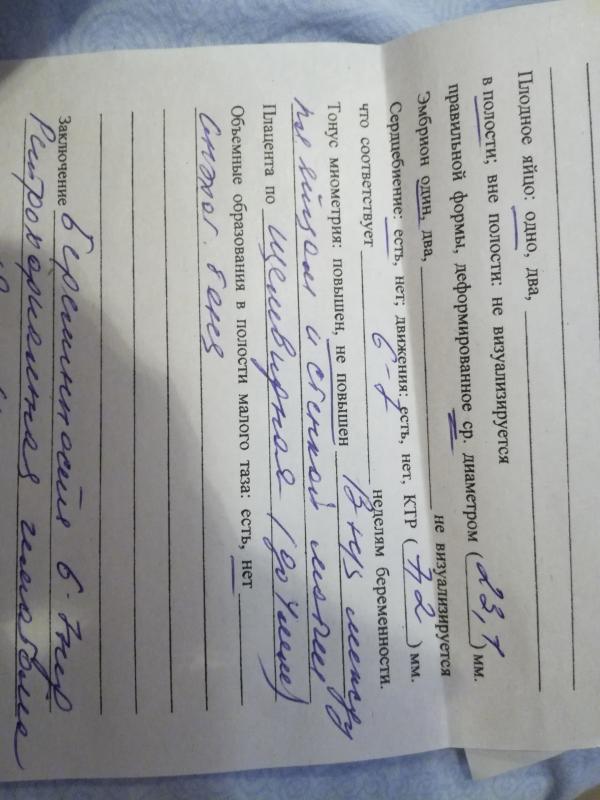 Плодное яйцо: одно, два,
в полости; вне полости: не визуализируется
правильной формы, деформированное ср. диаметром ( 23,1 ) мм.
Эмбрион один, два, не визуализируется
Сердцебиение: есть, нет; движения: есть, нет, КТР ( 7,2 ) мм.
что соответствует 6-7 неделям беременности.
Тонус миометрия: повышен, не повышен В н/з между
пл яйцом и стенкой матки
Плацента по щелевидная (до 4 мм)
Объемные образования в полости малого таза: есть, нет
Заключение Беременность 6-7 нед